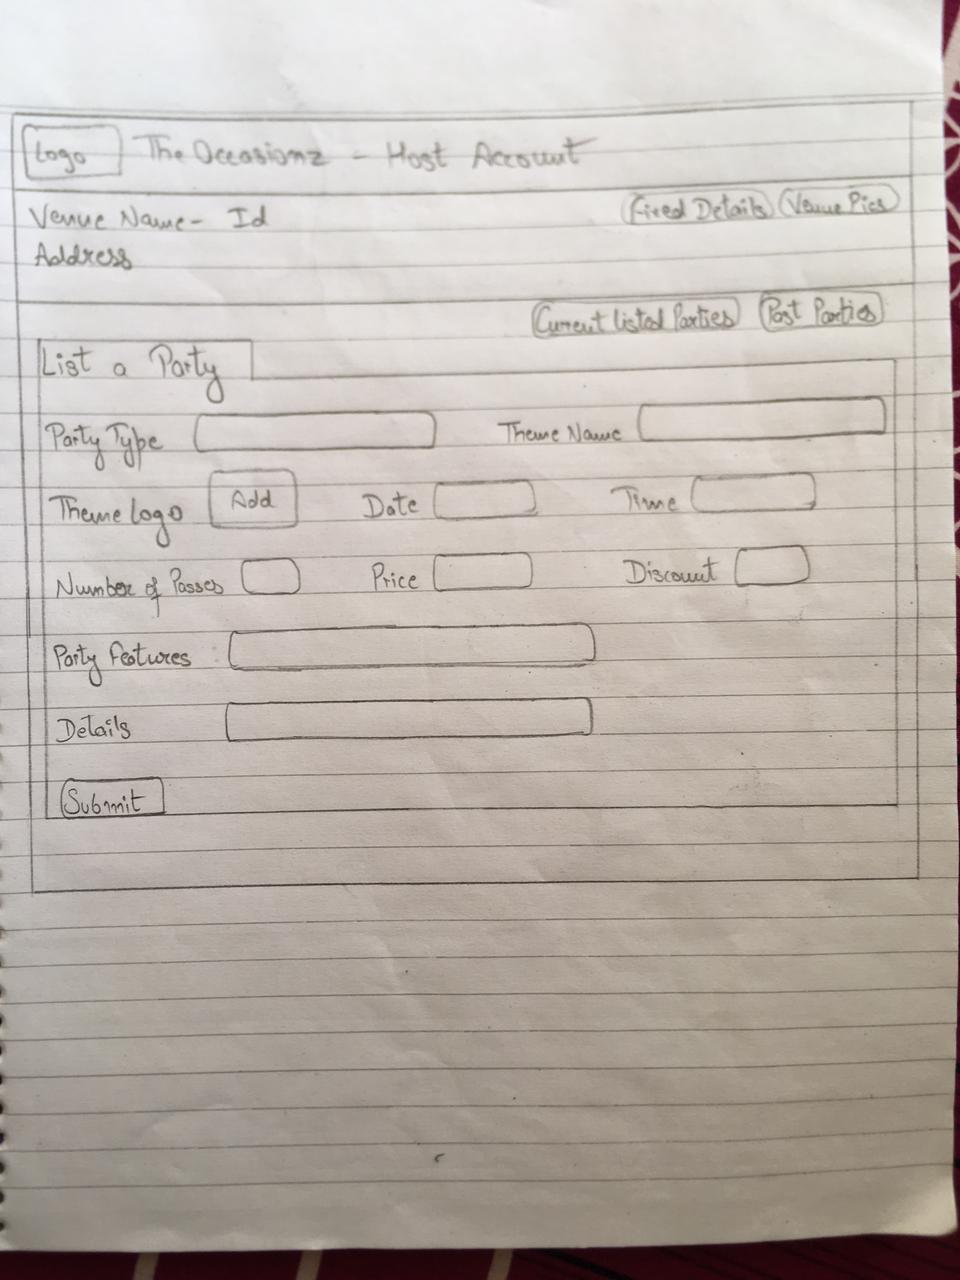 Logo The Occasionz - Host Account
Venue Name - Id Fixed Details Venue Pics
Address
Current Listed Parties Past Parties
List a Party
Party Type Theme Name
Theme Logo Add Date Time
Number of Passes Price Discount
Party Features
Details
Submit